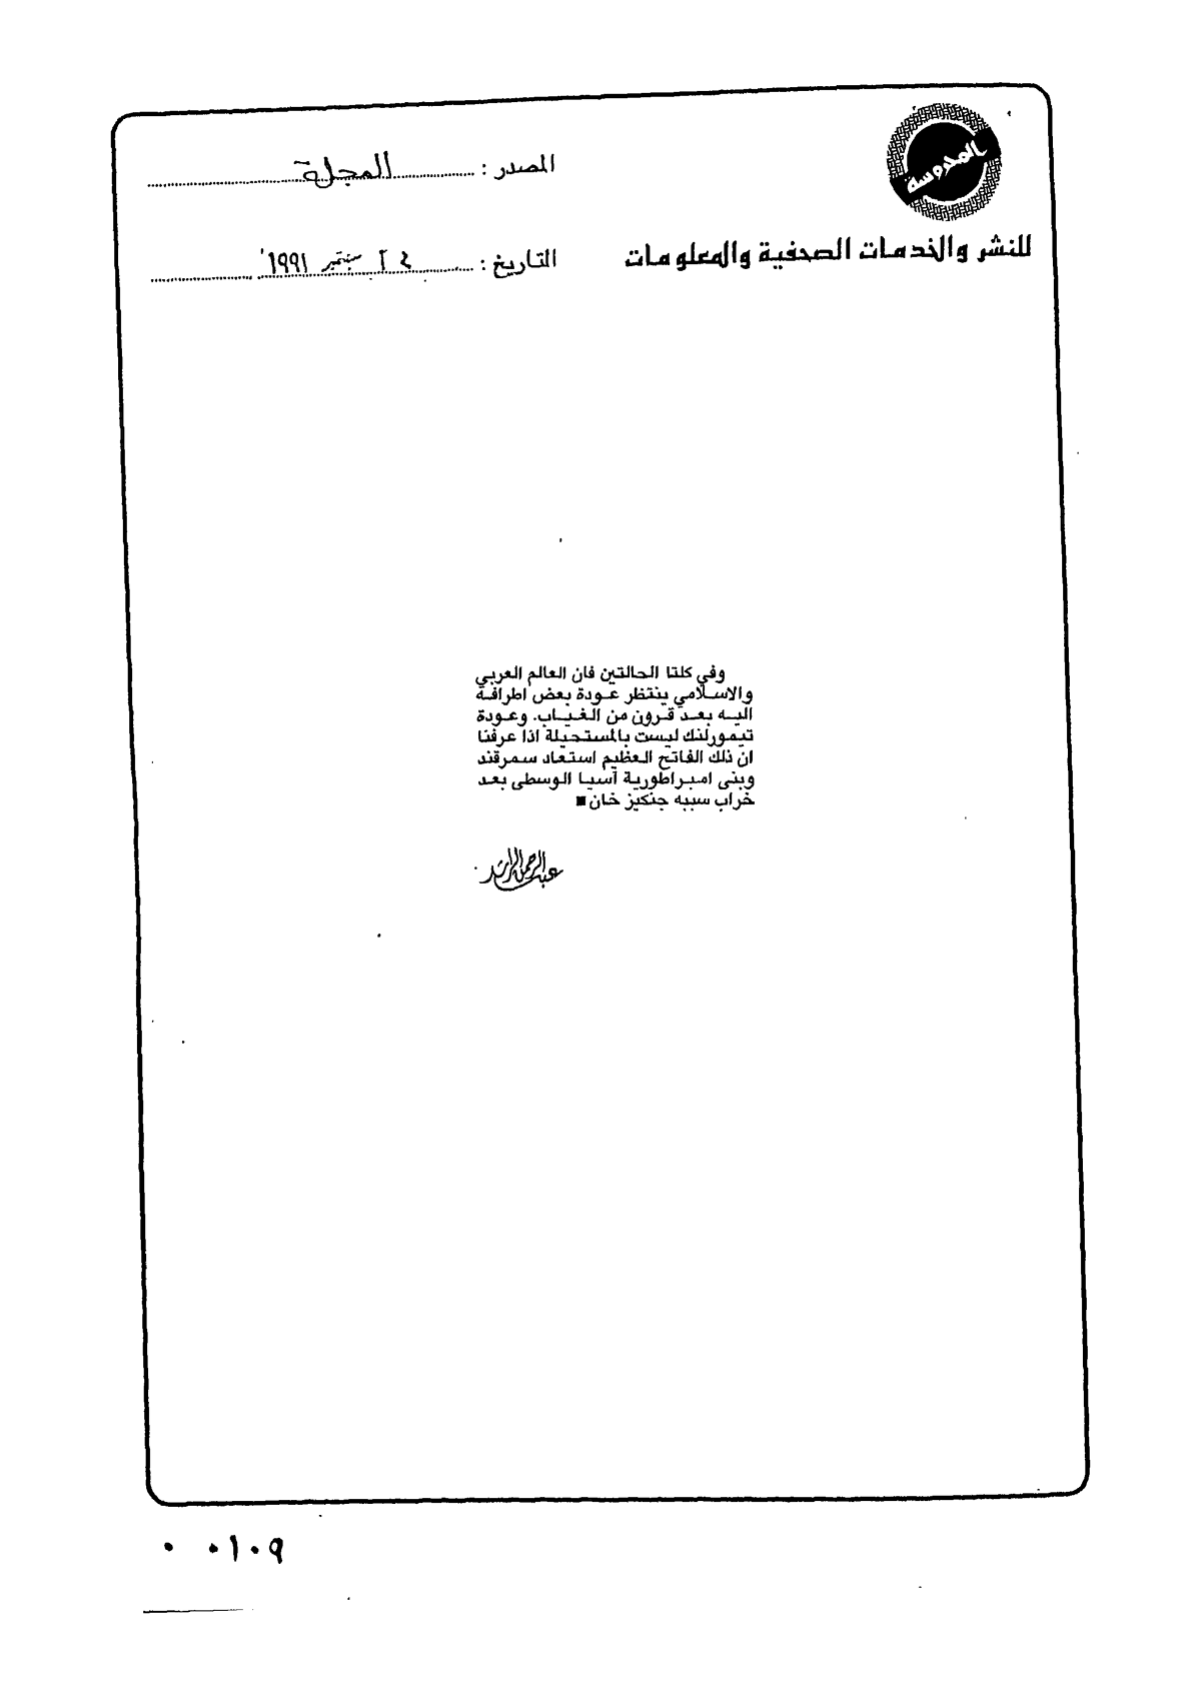 المحروسة
للنشر والخدمات الصحفية والمعلومات
المصدر : المجلة
التاريخ : ٢٤ سبتمبر ١٩٩١
وفي كلتا الحالتين فان العالم العربي
والاسلامي ينتظر عودة بعض اطرافه
اليه بعد قرون من الغياب. وعودة
تيمورلنك ليست بالمستحيلة اذا عرفنا
ان ذلك الفاتح العظيم استعاد سمرقند
وبنى امبراطورية آسيا الوسطى بعد
خراب سببه جنكيز خان ■
عبد الرحمن الراشد
٠ ٠١٠٩